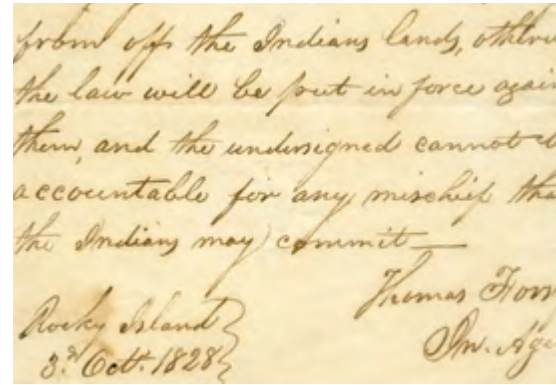 from off the Indians lands, otherw
the law will be put in force again
them, and the undersigned cannot
accountable for any mischief tha
the Indians may commit —
Thomas Fors
In. Age
Rocky Island
3.d Octr. 1828